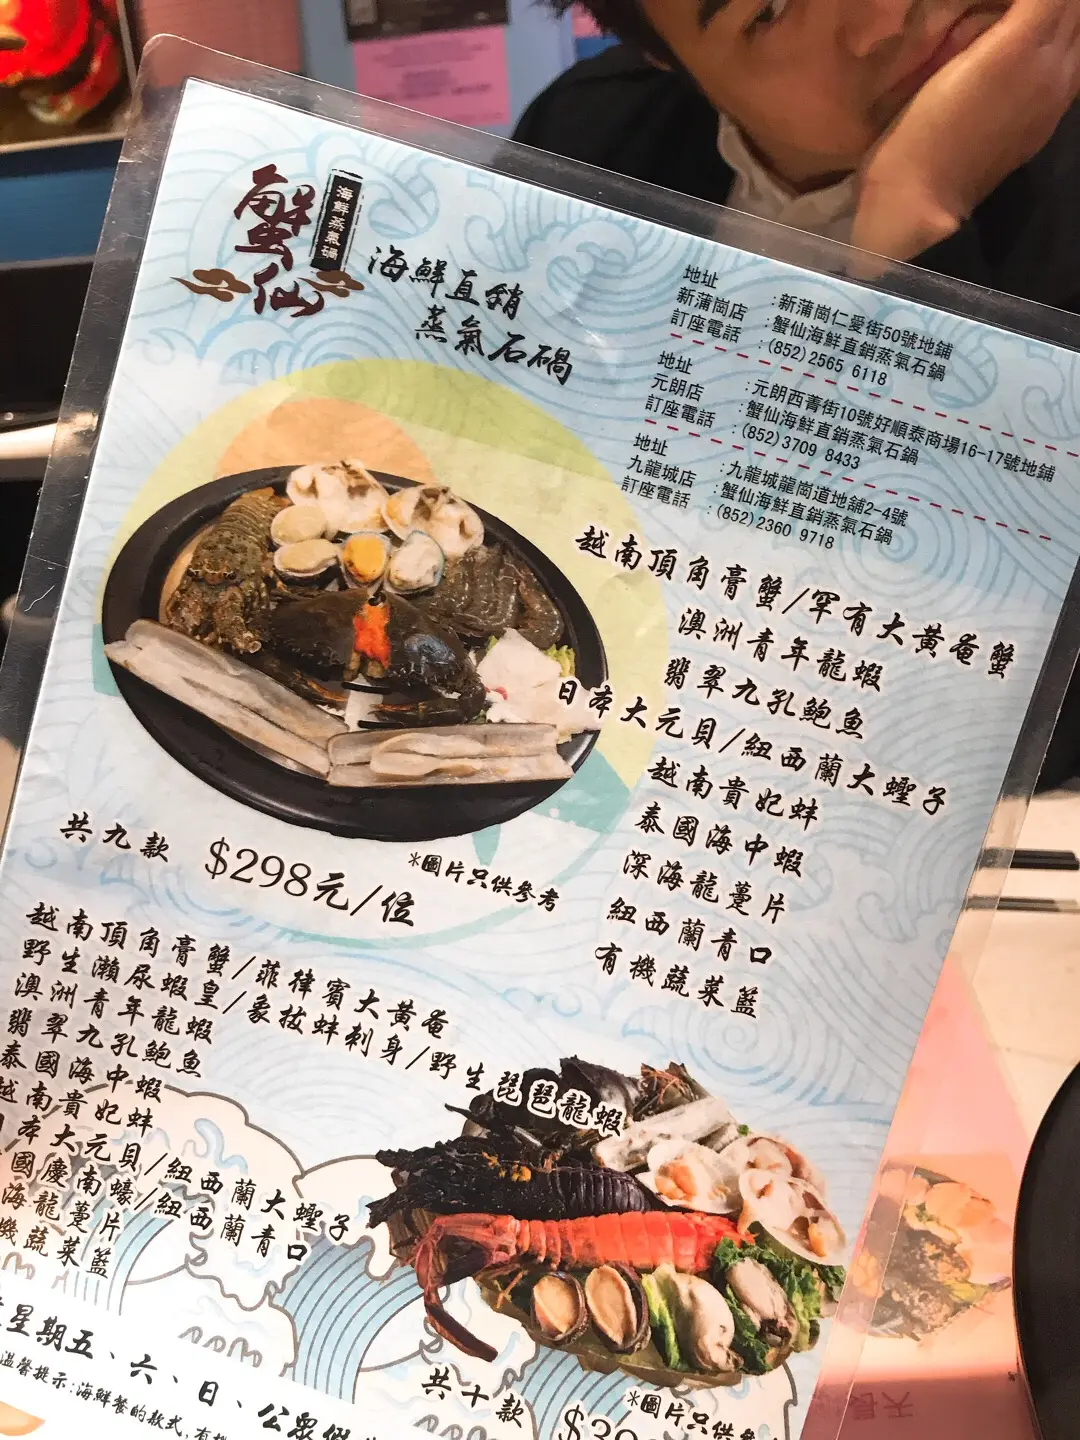 蟹仙
海鮮蒸氣鍋
海鮮直銷
蒸氣石鍋
地址 :新蒲崗仁愛街50號地鋪
新蒲崗店 :蟹仙海鮮直銷蒸氣石鍋
訂座電話 :(852)2565 6118
地址 :元朗西菁街10號好順泰商場16-17號地鋪
元朗店 :蟹仙海鮮直銷蒸氣石鍋
訂座電話 :(852)3709 8433
地址 :九龍城龍崗道地舖2-4號
九龍城店 :蟹仙海鮮直銷蒸氣石鍋
訂座電話 :(852)2360 9718
越南頂角膏蟹/罕有大黃奄蟹
澳洲青年龍蝦
翡翠九孔鮑魚
日本大元貝/紐西蘭大蟶子
越南貴妃蚌
泰國海中蝦
深海龍躉片
紐西蘭青口
有機蔬菜籃
共九款 $298元/位
*圖片只供參考
越南頂角膏蟹/菲律賓大黃奄
野生瀨尿蝦皇/象拔蚌刺身/野生琵琶龍蝦
澳洲青年龍蝦
翡翠九孔鮑魚
泰國海中蝦
越南貴妃蚌
本大元貝/紐西蘭大蟶子
國慶南蠔/紐西蘭青口
海龍躉片
機蔬菜籃
星期五、六、日、公眾假
溫馨提示:海鮮餐的款式,有機
共十款
*圖片只供參